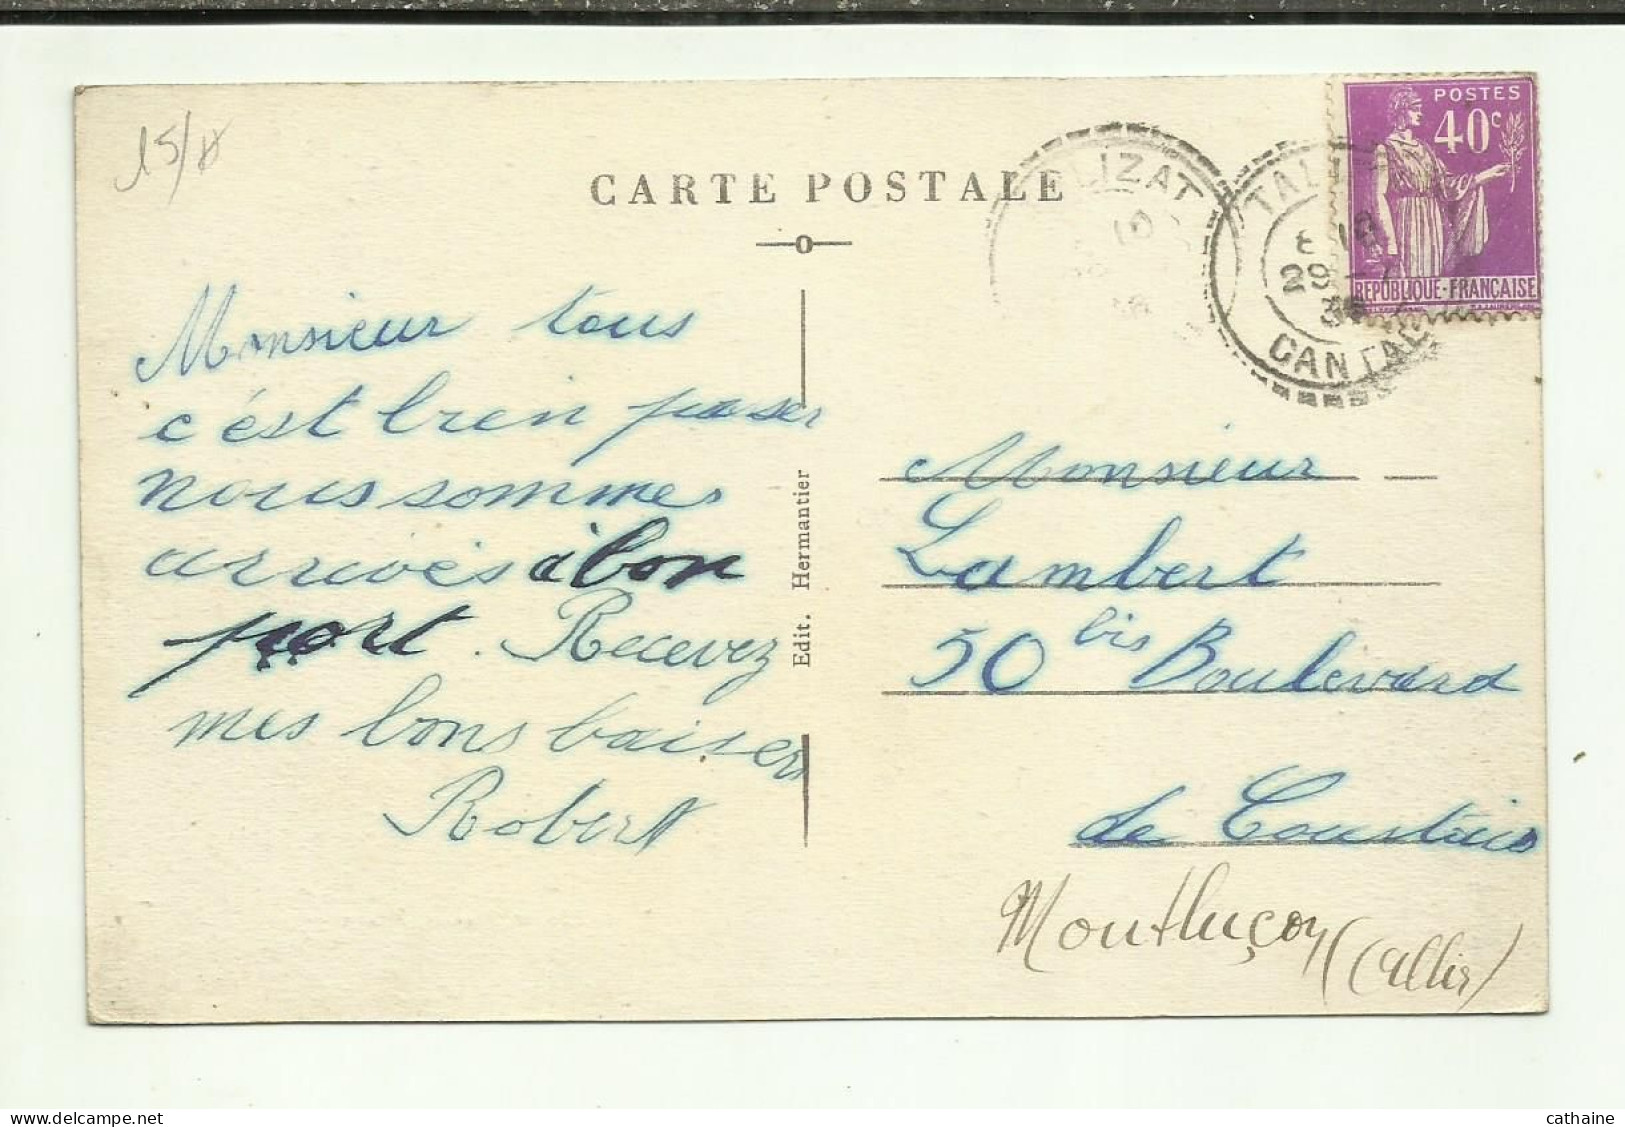 15/
CARTE POSTALE
POSTES
40c
REPUBLIQUE-FRANÇAISE
LIZAT
TAL
CANTAL
Monsieur tous
c'est bien passer
nous sommes
arrivés à bon
port. Recevez
mes bons baisers
Robert
Edit. Hermantier
Monsieur
Lambert
50 bis Boulevard
de Courtais
Montluçon (Allier)
cathaine